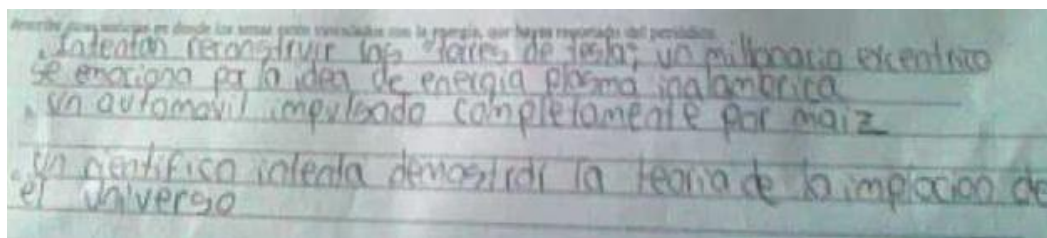 describe unas noticias en donde los temas estén vinculados con la energía, que hayas reportado del periódico.
. Intentan reconstruir las "torres de tesla", un millonario excentrico
se emociona por la idea de energia plasma inalambrica
. un automovil impulsado completamente por maiz
. un cientifico intenta demostrar la teoria de la implocion de
el universo